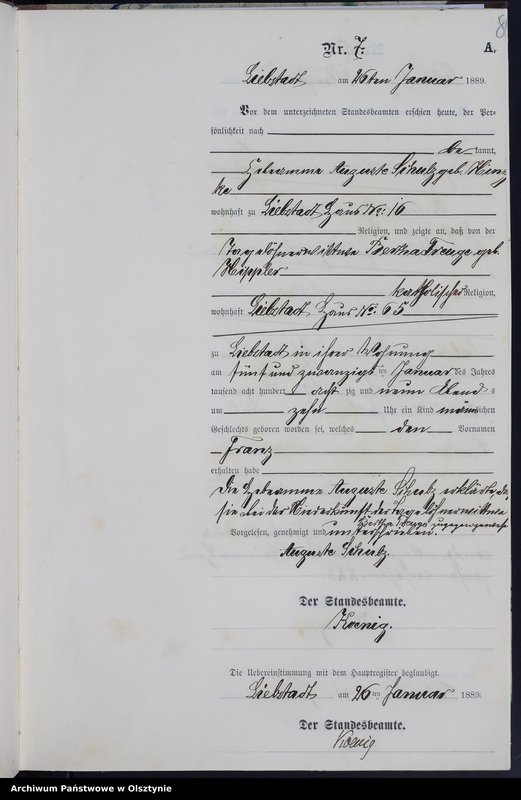 Nr. 7.
A.
Liebstadt am 26ten Januar 1889.
Vor dem unterzeichneten Standesbeamten erschien heute, der Per-
sönlichkeit nach
be kannt,
Hebeamme Auguste Schulz geb. Hinz
ke
wohnhaft zu Liebstadt Haus No: 16
Religion, und zeigte an, daß von der
Tagelöhnerwittwe Bertha geb.
Hippler
katholischer Religion,
wohnhaft Liebstadt, Haus No: 65
zu Liebstadt in ihrer Wohnung
am fünf und zwanzigs ten Januar des Jahres
tausend acht hundert acht zig und neun Abend s
um zehn Uhr ein Kind männlichen
Geschlechts geboren worden sei, welches den Vornamen
Franz
erhalten habe
Die Hebeamme Auguste Schulz erklärte, daß
sie bei der Niederkunft der Tagelöhnerwittwe
Bertha zugegen gewesen
Vorgelesen, genehmigt und unterschrieben.
Auguste Schulz.
Der Standesbeamte.
Koenig.
Die Uebereinstimmung mit dem Hauptregister beglaubigt.
Liebstadt am 26 ten Januar 1889.
Der Standesbeamte.
Koenig
Archiwum Państwowe w Olsztynie